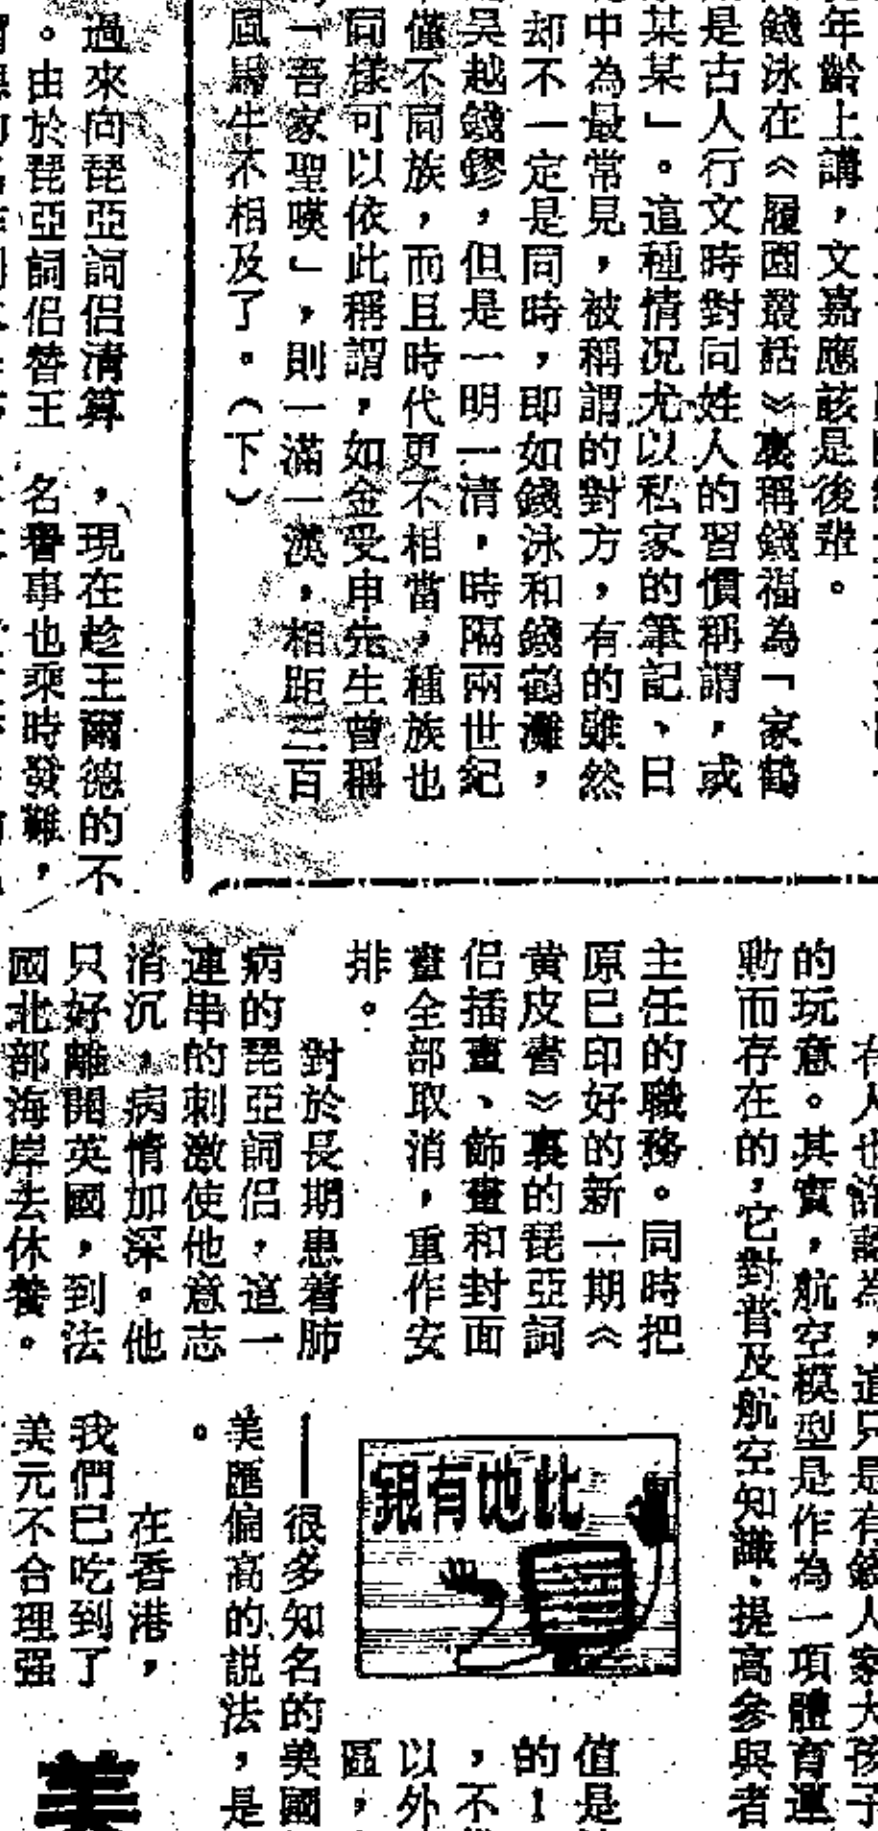 年齡上講，文嘉應該是後輩。
錢泳在《履園叢話》裏稱錢福為「家鶴
是古人行文時對同姓人的習慣稱謂，或
某某」。這種情况尤以私家的筆記、日
中為最常見，被稱謂的對方，有的雖然
却不一定是同時，即如錢泳和錢鶴灘，
吳越錢鏐，但是一明一清，時隔兩世紀
僅不同族，而且時代更不相當，種族也
同樣可以依此稱謂，如金受申先生曾稱
「吾家聖嘆」，則一滿一漢，相距三百
風馬牛不相及了。（下）
過來向琵亞詞侶清算
。由於琵亞詞侶替王
，現在趁王爾德的不
名譽事也乘時發難，
有人也許認為，這只是有錢人家大孩子
的玩意。其實，航空模型是作為一項體育運
動而存在的，它對普及航空知識、提高參與者
主任的職務。同時把
原已印好的新一期《
黄皮書》裏的琵亞詞
侶插畫、飾畫和封面
畫全部取消，重作安
排。
對於長期患着肺
病的琵亞詞侶，這一
連串的刺激使他意志
消沉，病情加深。他
只好離開英國，到法
國北部海岸去休養。
此地有銀
值是
的！
，不
以外
區，
——很多知名的美國
美匯偏高的説法，是
。
在香港，
我們已吃到了
美元不合理强
美